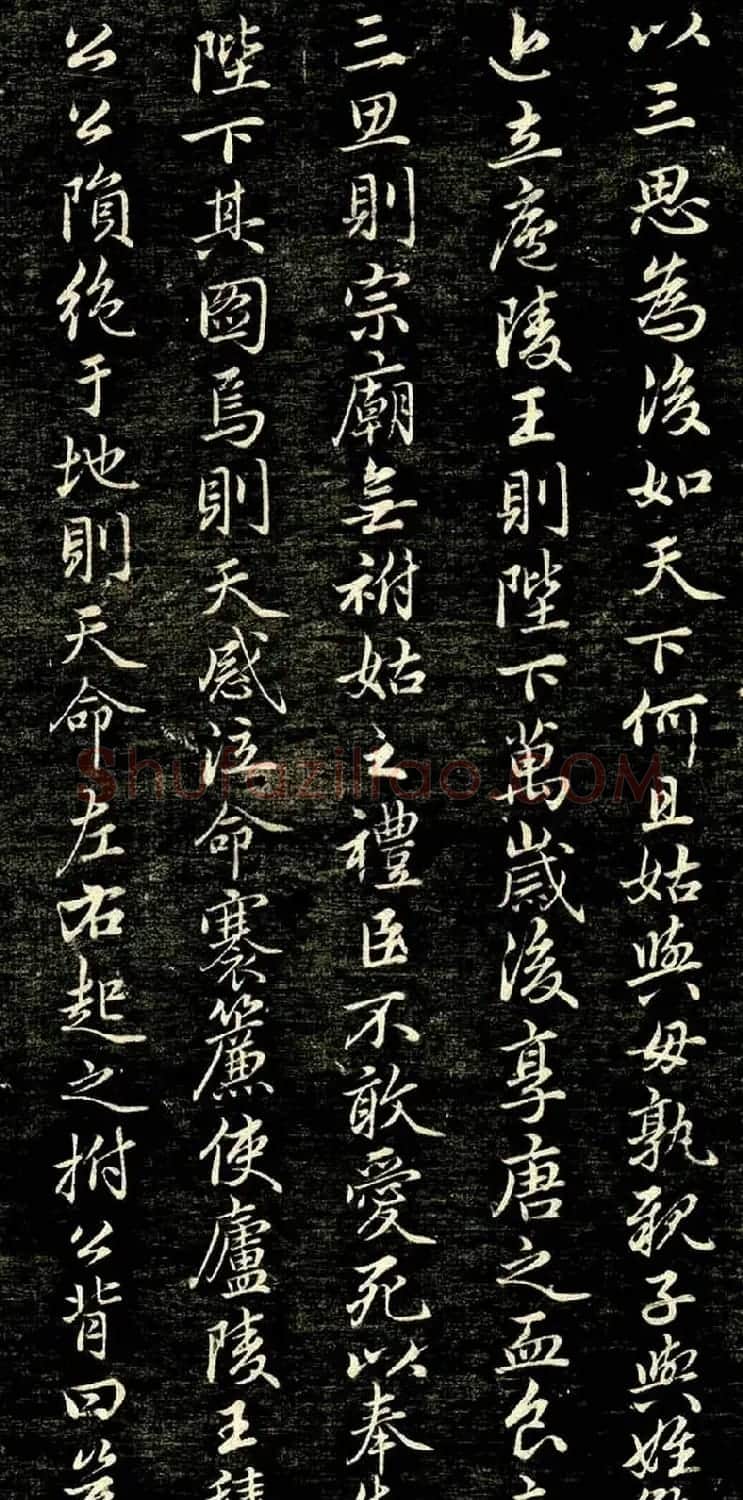 以三思為後如天下何且姑與母孰親子與姪
近立廬陵王則陛下萬歲後享唐之血食
三思則宗廟無祔姑之禮臣不敢愛死以奉
陛下其圖焉則天感泣命褰簾使廬陵王
公公隕絶于地則天命左右起之拊公背曰
Shufaziliao.COM